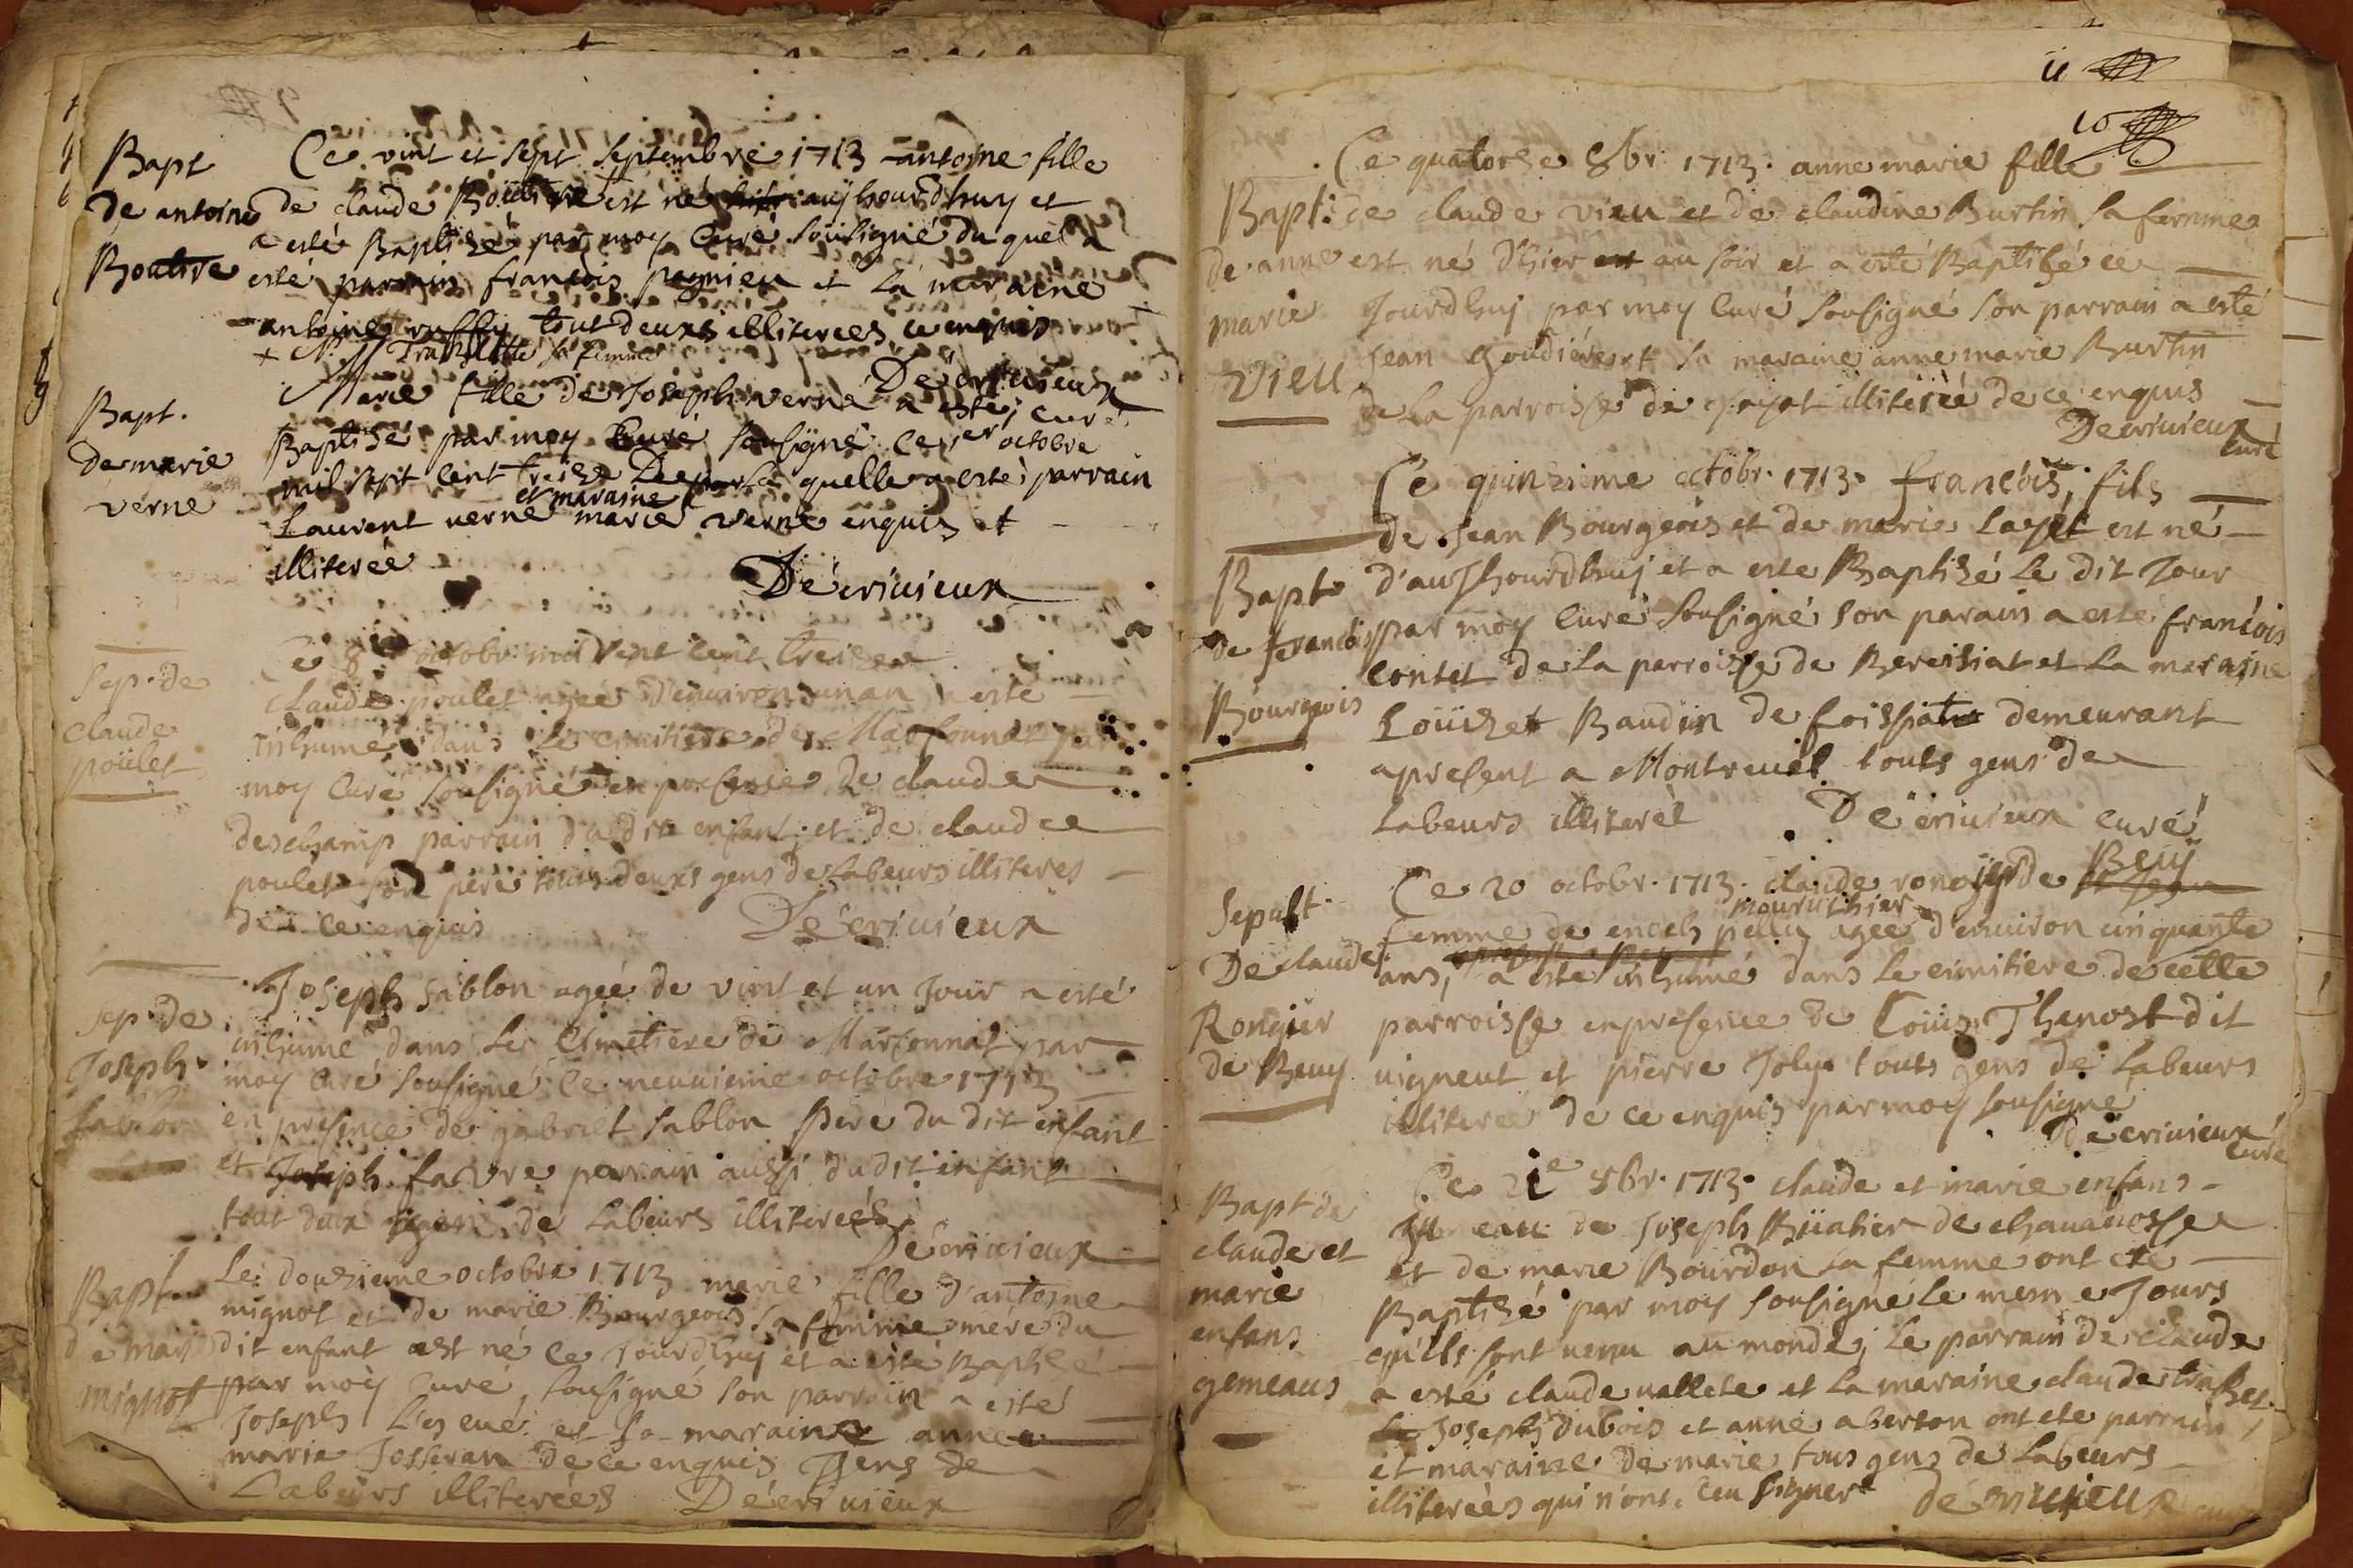 Bapt
de antoine
Boutire
Ce vint et sept septembre 1713 antoine fille
de claude Boutire est né aujhourdhuy et
a esté Baptizé par moy Curé sousigné du quel a
esté parrain francois pagnieu et la maraine
antoine ruffy tout deuxs illiterees ce enquis
sa femme
Décrivieux
curé
Bapt.
de marie
verne
Marie fille de Joseph verne a esté
Baptisé par moy Curé sousigné ce 1er octobre
mil sept cent treize De la quelle a esté parrain
Laurent verne et maraine marie verne enquis et
illiterée
Décrivieux
Sep. de
claude
poulet
Ce 8 octobr. mil sept cent treizee
claude poulet agée d'environ un an a esté
inhumé dans le cimitiere de Marsonnas par
moy Curé sousigné en presence de claude
deschamp parrain du dit enfant et de claude
poulet son pere tous deuxs gens de Labeurs illiteres
de ce enquis
Décrivieux
Sep. de
Joseph
sablon
Joseph sablon agée de vint et un Jour a esté
inhumé dans le Cimetiere de Marsonnas par
moy Curé sousigné ce neuvieme octobre 1713
en presence de gabriel sablon Pere du dit enfant
et Joseph favre parrain aussi du dit enfant
tout deux gens de Labeurs illiterées
Décrivieux
Bapt
de marie
mignot
Le douzieme octobre 1713 marie fille d'antoine
mignot et de marie Bourgeois sa femme mere du
dit enfant est né ce Jourdhuy et a esté Baptisé
par moy Curé sousigné son parrain a esté
Joseph et sa maraine anne
marie Josseran de ce enquis Gens de
Labeurs illiterées Décrivieux
11
10
Bapt.
de anne
marie
Vieu
Ce quatorse 8br 1713. anne marie fille
de claude vieu et de claudine Burtin sa femme
est né D'hier au soir et a esté Baptisé ce
Jourdhuy par moy Curé sousigné son parrain a esté
Jean et sa maraine anne marie Burtin
de La parroisse de illiterée de ce enquis
Décrivieux
curé
Bapt
de francois
Bourgeois
Ce quinzieme octobr. 1713. francois, fils
de Jean Bourgeois et de marie Layet est né
d'aujhourdhuy et a este Baptizé Le dit Jour
par moy Curé sousigné son parain a esté francois
contet de La parroisse de Bereisiat et La maraine
Baudin de foissiat demeurant
apresent a Montrevel touts gens de
Labeurs illiterée Décrivieux curé
Sepult.
De claude
Rongier
de Beuy
Ce 20 octobr. 1713. claude rongier de Beuy
femme de pelluy mouruthier agée d'environ cinquante
ans, a esté inhumé dans le cimitiere de cette
parroisse en presence de Louis Thenost dit
vigneut et pierre Joly touts gens de Labeurs
illiteree de ce enquis par moy sousigné
Décrivieux
curé
Bapt de
claude et
marie
enfans
gemeaus
Ce 21e 8br. 1713. claude et marie enfans
Jumeau de Joseph Büatier de chavanosse
et de marie Bourdon sa femme ont ete
Baptisé par moy sousigné le mesme Jours
qu'ils sont venu au monde; Le parrain de claude
a esté claude vallete et La maraine claude
Joseph Dubois et anne aberton ont ete parrain
et maraine de marie, tous gens de Labeurs
illiterées qui n'ont sceu signer décrivieux